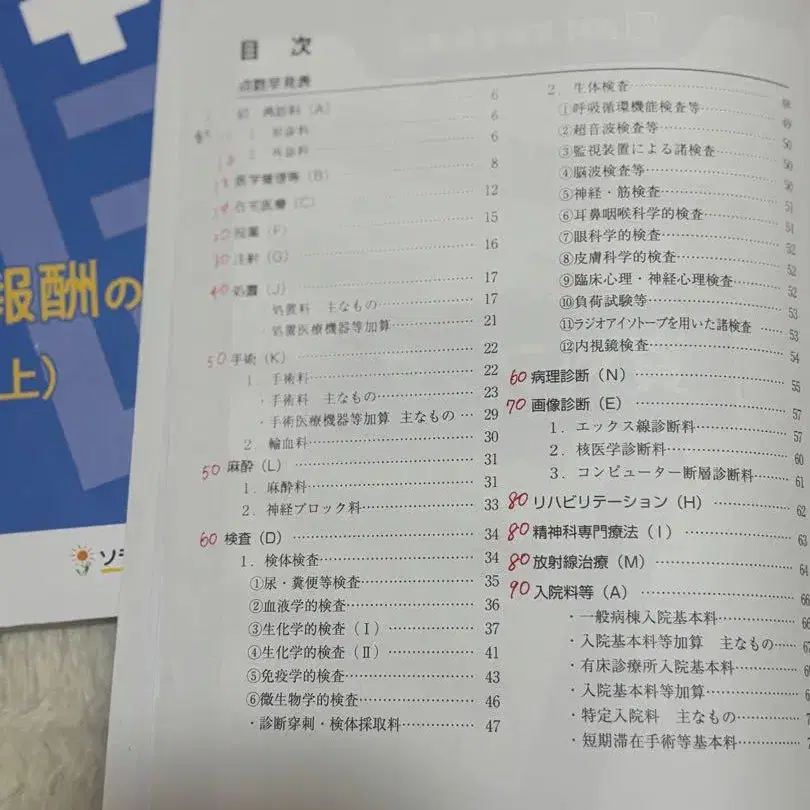 報酬の
上）
ソ
目 次
点数早見表
初・再診料（A） 6
1 初診料 6
2 再診料 6
13 医学管理等（B） 8
14 在宅医療（C） 12
20 投薬（F） 15
30 注射（G） 16
40 処置（J） 17
処置料 主なもの 17
・処置医療機器等加算 21
50 手術（K） 22
1．手術料 22
・手術料 主なもの 23
・手術医療機器等加算 主なもの 29
2．輸血料 30
50 麻酔（L） 31
1．麻酔料 31
2．神経ブロック料 33
60 検査（D） 34
1．検体検査 34
①尿・糞便等検査 35
②血液学的検査 36
③生化学的検査（Ⅰ） 37
④生化学的検査（Ⅱ） 41
⑤免疫学的検査 43
⑥微生物学的検査 46
・診断穿刺・検体採取料 47
2．生体検査
①呼吸循環機能検査等 49
②超音波検査等 50
③監視装置による諸検査 50
④脳波検査等 50
⑤神経・筋検査 51
⑥耳鼻咽喉科学的検査 51
⑦眼科学的検査 52
⑧皮膚科学的検査 52
⑨臨床心理・神経心理検査 52
⑩負荷試験等 53
⑪ラジオアイソトープを用いた諸検査 53
⑫内視鏡検査 54
60 病理診断（N） 55
70 画像診断（E） 57
1．エックス線診断料 57
2．核医学診断料 60
3．コンピューター断層診断料 61
80 リハビリテーション（H） 62
80 精神科専門療法（I） 63
80 放射線治療（M） 64
90 入院料等（A） 66
・一般病棟入院基本料
・入院基本料等加算 主なもの
・有床診療所入院基本料
・入院基本料等加算
・特定入院料 主なもの
・短期滞在手術等基本料